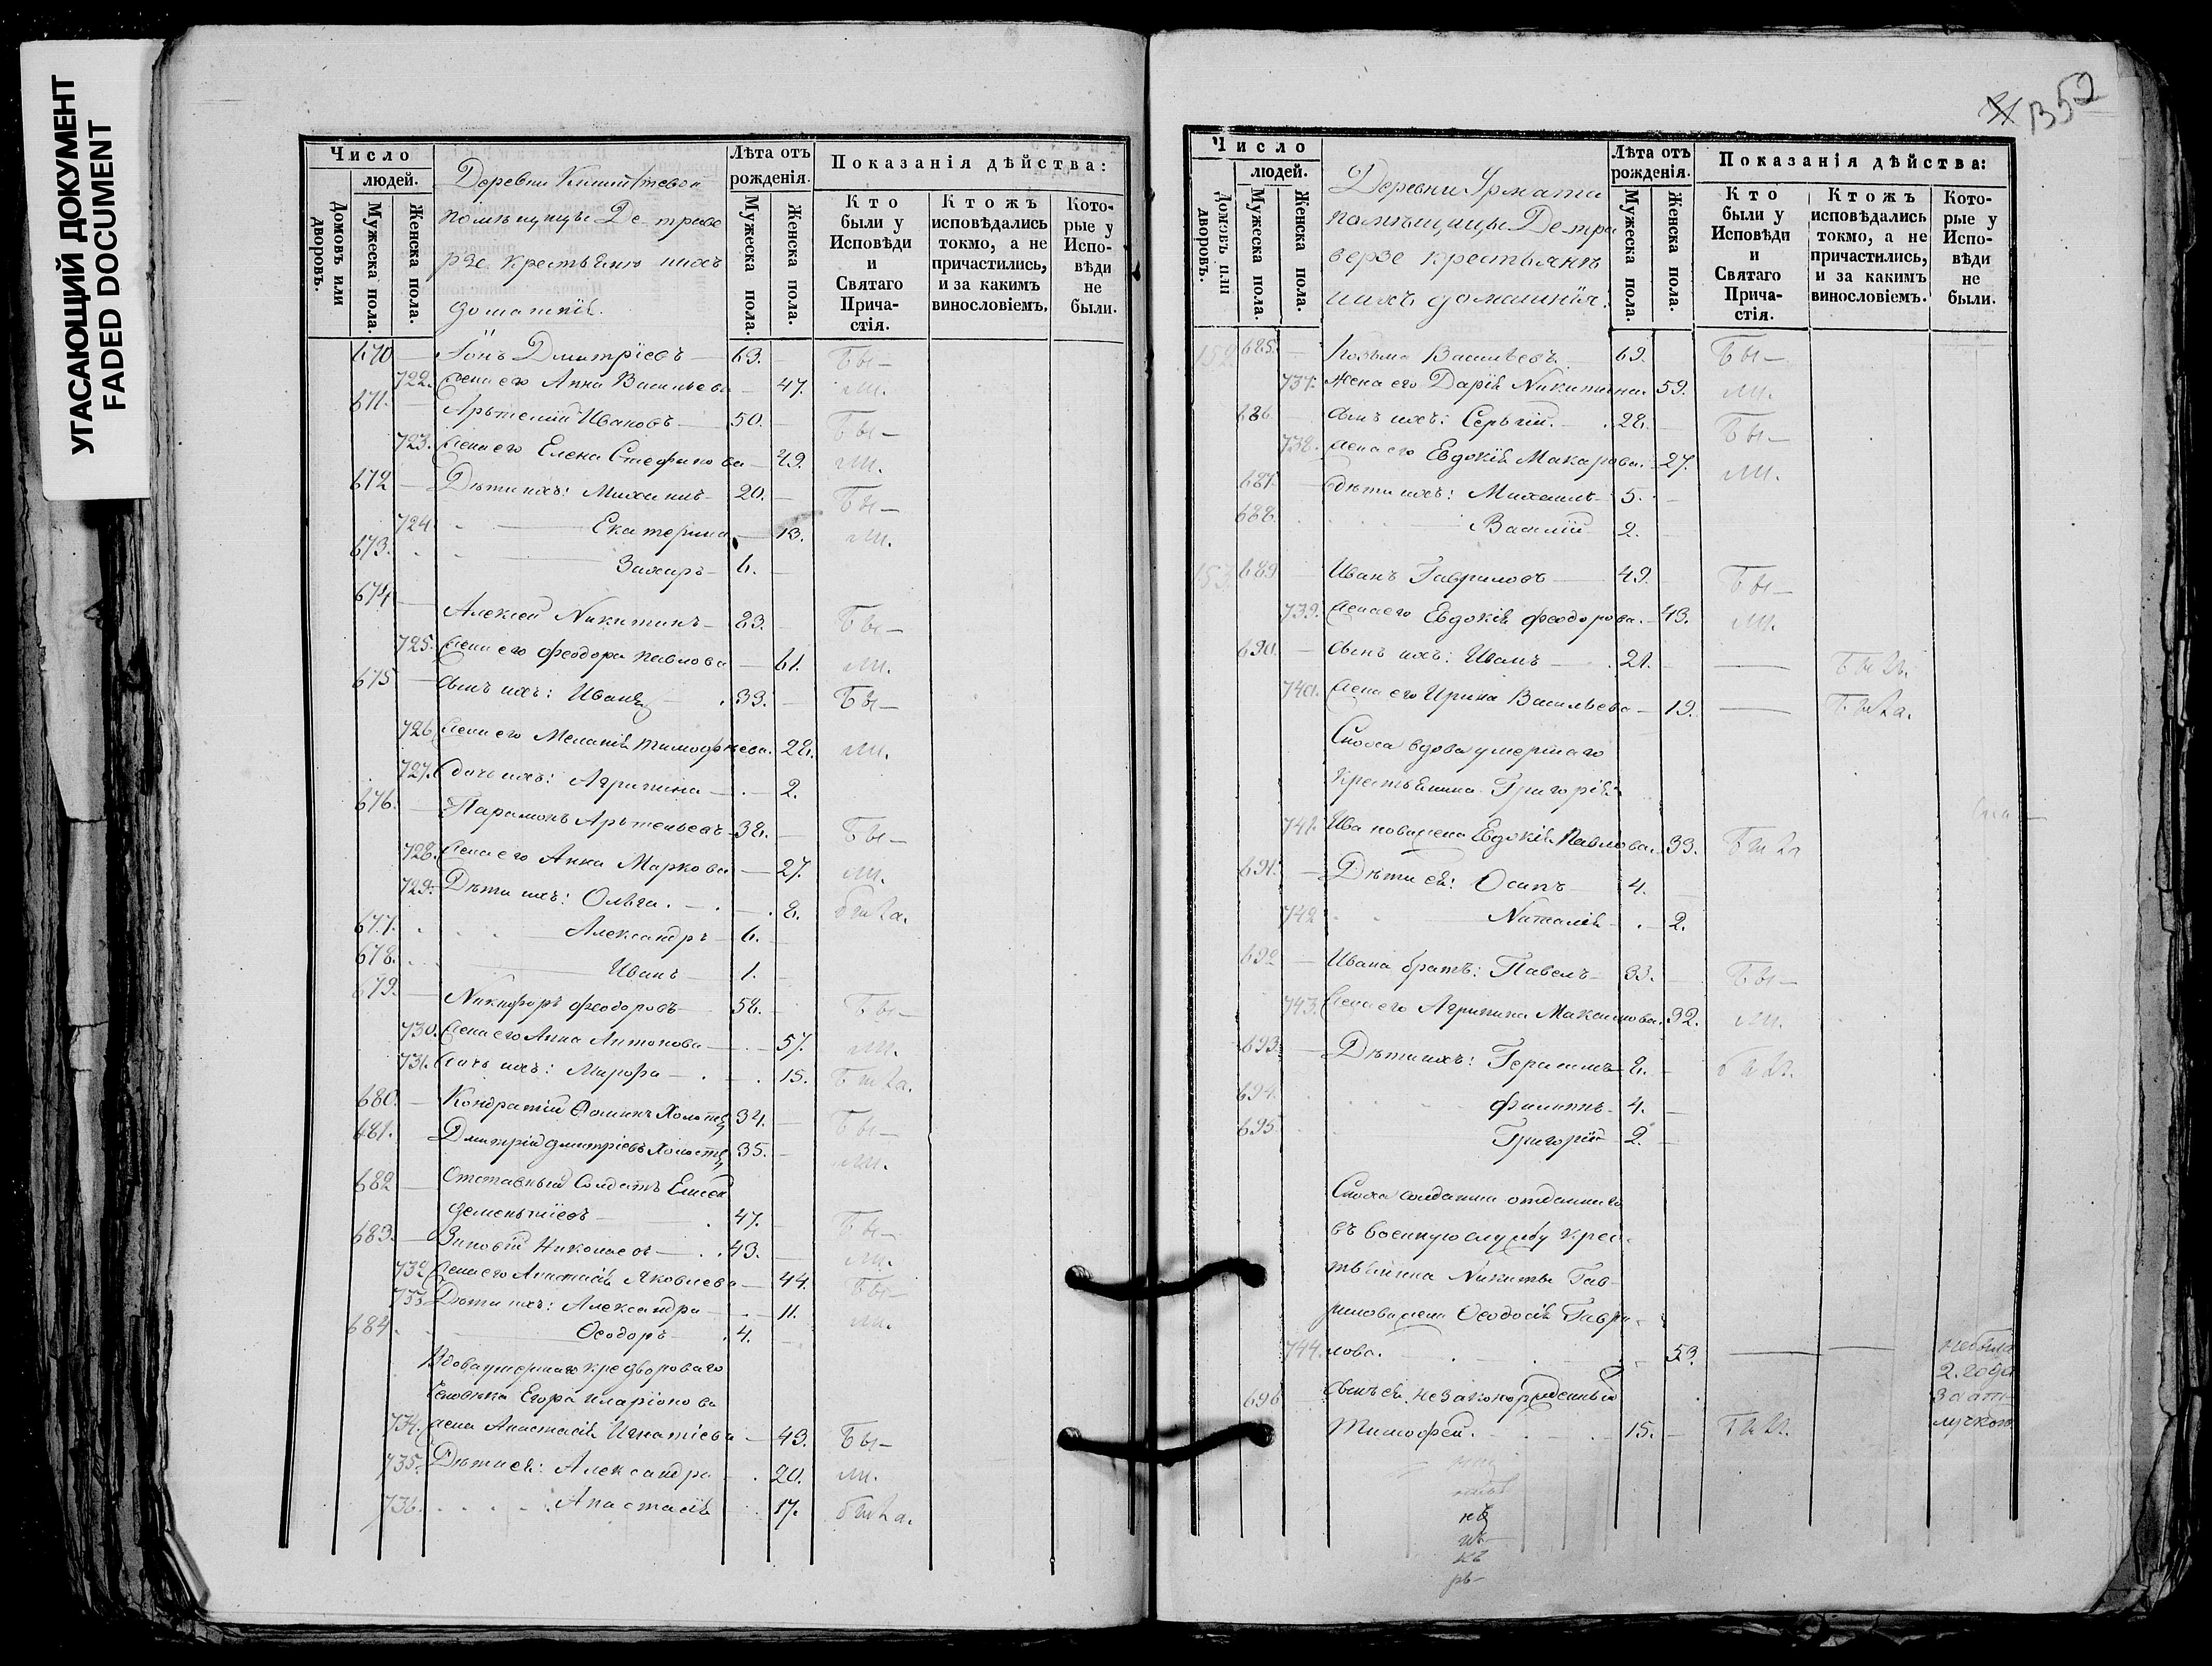 УГАСАЮЩИЙ ДОКУМЕНТ
FADED DOCUMENT
Число
людей.
Домовъ или дворовъ.
Мужеска пола.
Женска пола.
Деревни
помѣщицы Де траве
рзе крестьяне ихъ
домашнія.
Лѣта отъ рожденія.
Мужеска пола.
Женска пола.
Показанія дѣйства:
Кто были у Исповѣди и Святаго Прича-стія.
Ктожъ исповѣдались токмо, а не причастились, и за какимъ винословіемъ.
Кото-рые у Испо-вѣди не были.
670 Іонъ Дмитріевъ 63. Бы-
722. Жена его Анна Васильева 47. ли.
671. Артемій Ивановъ 50. Бы-
723. Жена его Елена Стефанова 49. ли.
672 Дѣти ихъ: Михаилъ 20. Бы-
724. Екатерина 13. ли.
673. Захаръ 6.
674 Алексей Никитинъ 83. Бы-
725. Жена его Феодора Павлова 61. ли.
675 Сынъ ихъ: Иванъ 33. Бы-
726 Жена его Меланія Тимофѣева. 28. ли.
727. Дочь ихъ: Агрипина 2.
676. Парамонъ Артемьевъ 38. Бы-
728. Жена его Анна Маркова 27. ли.
729. Дѣти ихъ: Ольга. 8. была.
677. Александръ 6.
678. Иванъ 1.
679. Никифоръ Феодоровъ 58. Бы-
730. Жена его Анна Антонова 57. ли.
731. Дочь ихъ: Марфа 15. Была.
680. Кондратій Фоминъ Холостъ 34. Бы-
681. Дмитрій Дмитріевъ Холостъ 35. ли.
682 Отставный Солдатъ Елисей
Дементіевъ 47. Бы-
683. Зиновій Николаевъ 43. ли.
732 Жена его Анастасія Яковлева 44. Бы-
733 Дѣти ихъ: Александра 11. ли.
684. Ѳеодоръ 4.
Вдова умершаго двороваго
Человѣка Егора Иларіонова
734. жена Анастасія Игнатіева 43. Бы-
735. Дѣти ея: Александра 20. ли.
736. Анастасія 17. была.
352
Число
людей.
Домовъ или дворовъ.
Мужеска пола.
Женска пола.
Деревни Ярмата
помѣщицы Де тра
верзе крестьянъ
ихъ домашнія.
Лѣта отъ рожденія.
Мужеска пола.
Женска пола.
Показанія дѣйства:
Кто были у Исповѣди и Святаго Прича-стія.
Ктожъ исповѣдались токмо, а не причастились, и за какимъ винословіемъ.
Кото-рые у Испо-вѣди не были.
152 685. Козьма Васильевъ 69. Бы-
737. Жена его Дарія Никитина. 59. ли.
686 Сынъ ихъ: Сергій. 28. Бы-
738. Жена его Евдокія Макарова. 27. ли.
687. Дѣти ихъ: Михаилъ 5.
688. Василій 2.
153 689 Иванъ Гавриловъ 49. Бы-
739. Жена его Евдокія Феодорова. 43. ли.
690. Сынъ ихъ: Иванъ 21. Былъ.
740. Жена его Ирина Васильева 19. Была.
Сноха вдова умершаго
Крестьянина Григорія
741. Иванова жена Евдокія Павлова. 33. Была
691. Дѣти ея: Осипъ 4.
742 Наталія 2.
692 Ивана братъ: Павелъ 33. Бы-
743. Жена его Агрипина Максимова. 32. ли.
693. Дѣти ихъ: Герасимъ 8. былъ.
694. Филиппъ 4.
695 Григорій 2.
Сноха солдатка отданнаго
въ военную службу крес-
тьянина Никиты Гав-
рилова жена Ѳеодосія Гаври-
744. лова. 53. небыла
2. года
За от-
лучкою
696 Сынъ ея незаконорожденный
Тимофей. 15. Былъ.